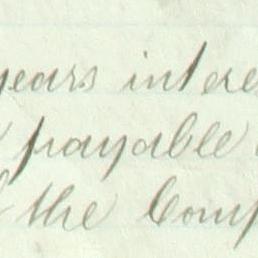 years intere
payable
the Comp